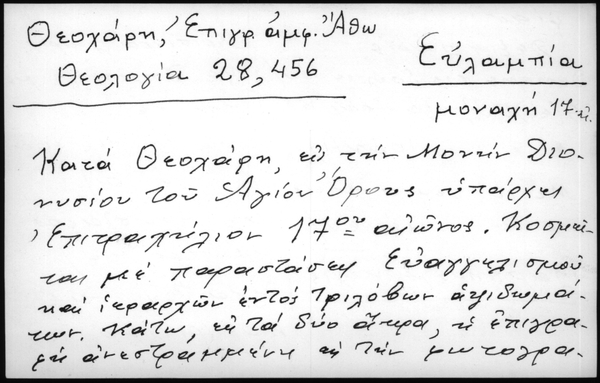 Θεοχάρη, Ἐπιγρ ἀμφ. Ἄθω
Θεολογία 28,456
Εὐλαμπία
μοναχή 17 αἰ.
Κατά Θεοχάρη, εἰς τήν Μονήν Διο-
νυσίου τοῦ Ἁγίου Ὄρους ὑπάρχει
Ἐπιτραχήλιον 17ου αἰῶνος. Κοσμεῖ-
ται μέ παραστάσεις Εὐαγγελισμοῦ
καί ἱεραρχῶν ἐντός τριλόβων ἀψιδωμά-
των. Κάτω, εἰς τά δύο ἄκρα, ἡ ἐπιγρα-
φή ἀνεστραμμένη εἰς τήν φωτογρα-